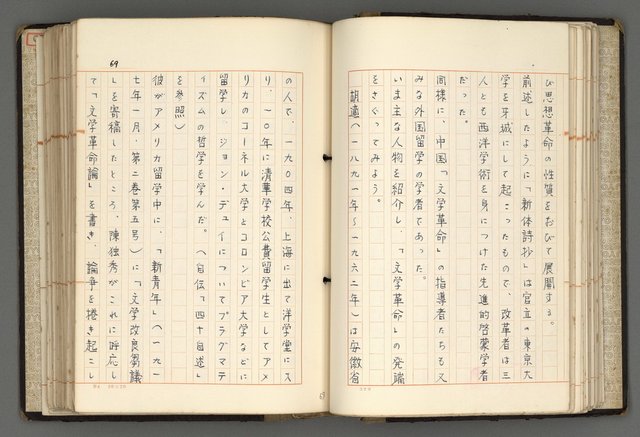 び思想革命の性質をおびて展開する。
前述したように「新体詩抄」は官立の東京大
学を牙城にして起こったもので、改革者は三
人とも西洋学術を身につけた先進的啓蒙学者
だった。
同様に、中国「文学革命」の指導者たちも又
みな外国留学の学者であった。
いま主な人物を紹介し、「文学革命」の発端
をさぐってみよう。
胡適(一八九一年~一九六二年)は安徽省
69
の人で、一九〇四年、上海に出て洋学堂に入
り、一〇年に清華学校公費留学生としてアメ
リカのコーネル大学とコロンビア大学などに
留学し、ジョン・デュイについてプラグマテ
ィズムの哲学を学んだ。(自伝「四十自述」
を参照)
彼がアメリカ留学中に、「新青年」(一九一
七年一月・第二巻第五号)に「文学改良芻議
」を寄稿したところ、陳独秀がこれに呼応し
て「文学革命論」を書き、論争を捲き起こし
69